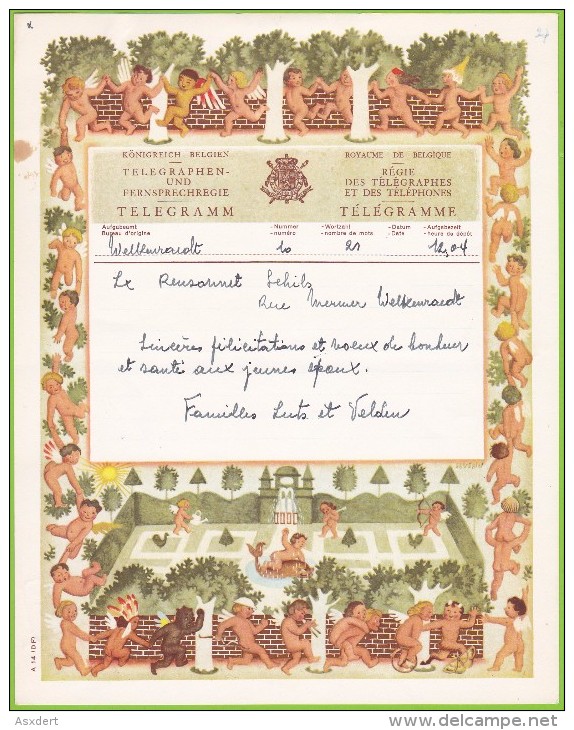 KÖNIGREICH BELGIEN
TELEGRAPHEN-
UND
FERNSPRECHREGIE
TELEGRAMM
ROYAUME DE BELGIQUE
RÉGIE
DES TÉLÉGRAPHES
ET DES TÉLÉPHONES
TÉLÉGRAMME
Aufgabeamt - Nummer - Wortzahl - Datum - Aufgabezeit
Bureau d'origine - numéro - nombre de mots - Date - heure du dépôt
Welkenraedt 10 21 12,04
Lx Rensonnet Schils
Rue Mermer Welkenraedt
Sincères félicitations et voeux de bonheur
et santé aux jeunes époux.
Familles Luts et Velden
A. 14 (DF)
Asxdert
delcampe.net